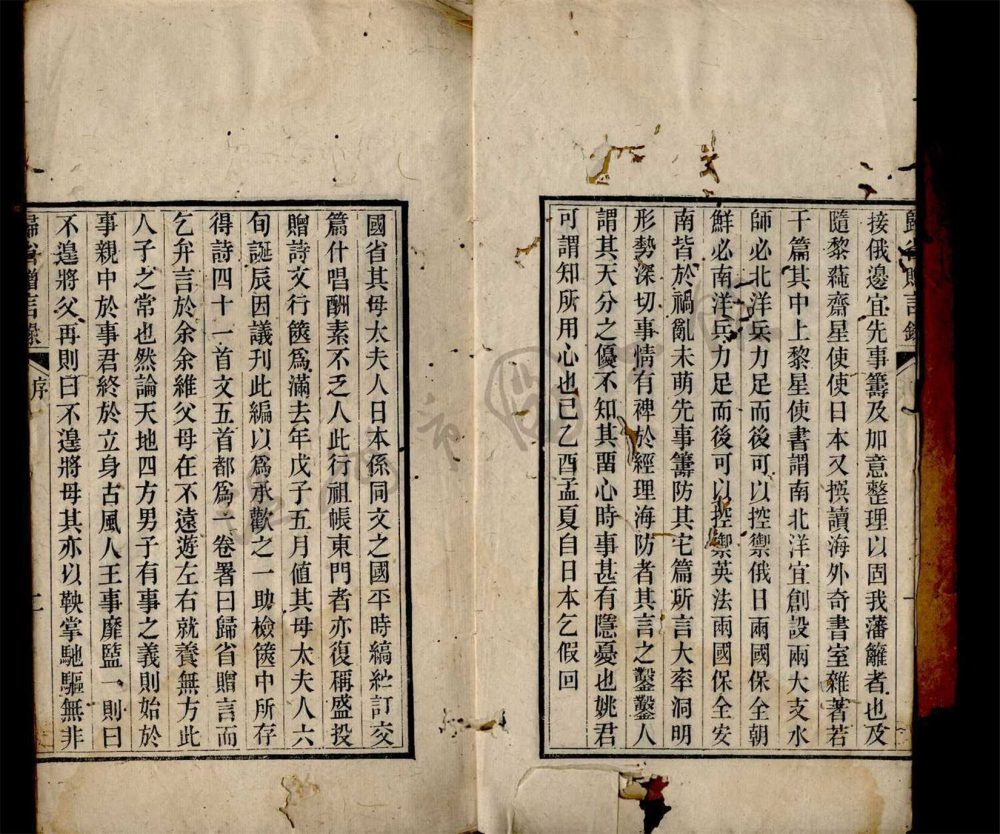 歸省贈言錄
接俄邊宜先事籌及加意整理以固我藩籬者也及
隨黎蒓齋星使使日本又撰讀海外奇書室雜著若
干篇其中上黎星使書謂南北洋宜創設兩大支水
師必北洋兵力足而後可以控禦俄日兩國保全朝
鮮必南洋兵力足而後可以控禦英法兩國保全安
南皆於禍亂未萌先事籌防其宅篇所言大率洞明
形勢深切事情有裨於經理海防者其言之鑿鑿人
謂其天分之優不知其畱心時事甚有隱憂也姚君
可謂知所用心也已乙酉孟夏自日本乞假回
國省其母太夫人日本係同文之國平時縞紵訂交
篇什唱酬素不乏人此行祖帳東門者亦復稱盛投
贈詩文行篋為滿去年戊子五月值其母太夫人六
旬誕辰因議刊此編以為承歡之一助檢篋中所存
得詩四十一首文五首都為一卷署曰歸省贈言而
乞弁言於余余維父母在不遠遊左右就養無方此
人子之常也然論天地四方男子有事之義則始於
事親中於事君終於立身古風人王事靡盬一則曰
不遑將父再則曰不遑將母其亦以鞅掌馳驅無非
歸省贈言錄
序
二